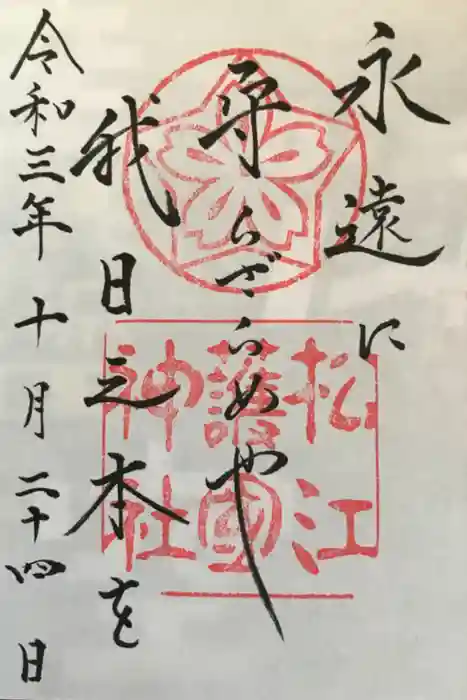 永遠に
守らざらめや
我日之本を
令和三年十月二十四日
松江
護國
神社